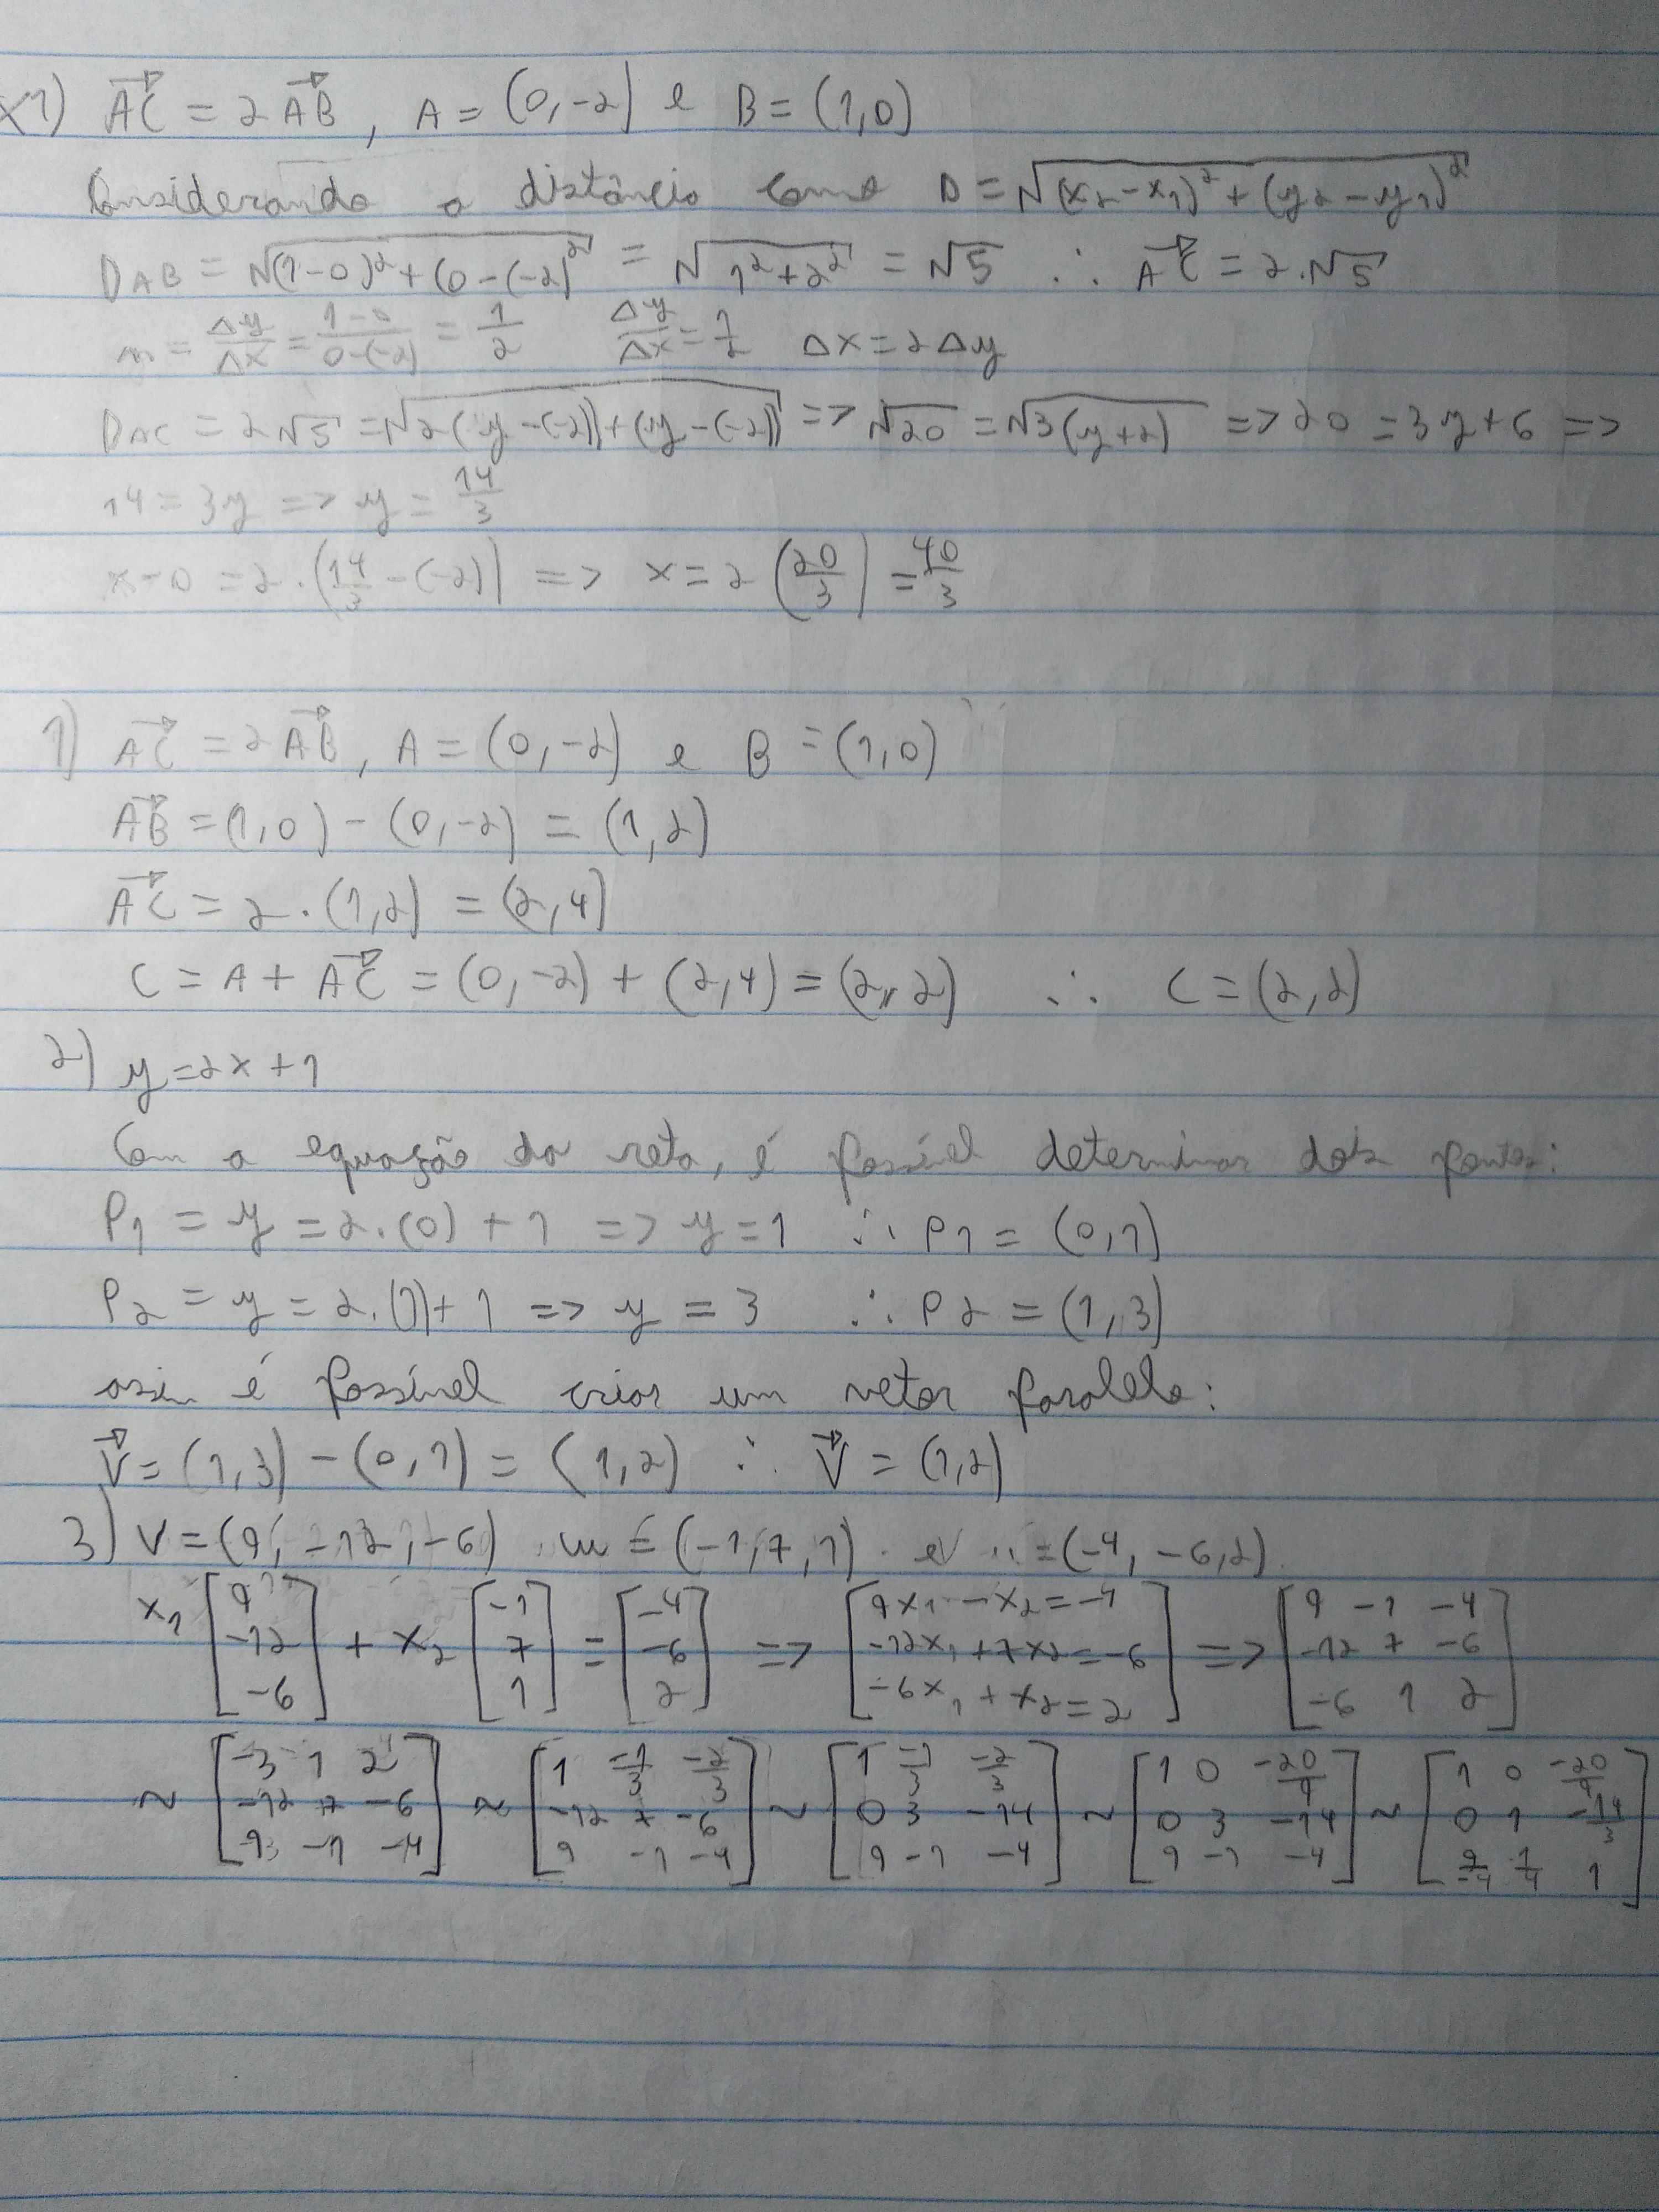 x1) AC⃗ = 2 AB⃗, A = (0,-2) e B = (1,0)
Considerando a distância como D = √((x₂-x₁)² + (y₂-y₁)²)
DAB = √((1-0)² + (0-(-2))²) = √(1²+2²) = √5 ∴ AC⃗ = 2.√5
m = Δy/Δx = (1-0)/(0-(-2)) = 1/2   Δy/Δx = 1/2   Δx = 2Δy
DAC = 2√5 = √(2(y-(-2)) + (y-(-2))) => √20 = √(3(y+2)) => 20 = 3y+6 =>
14 = 3y => y = 14/3
x-0 = 2.(14/3-(-2)) => x = 2(20/3) = 40/3
1) AC⃗ = 2AB⃗, A = (0,-2) e B = (1,0)
AB⃗ = (1,0) - (0,-2) = (1,2)
AC⃗ = 2.(1,2) = (2,4)
C = A + AC⃗ = (0,-2) + (2,4) = (2,2) ∴ C = (2,2)
2) y = 2x+1
Com a equação da reta, é possível determinar dois pontos:
P1 = y = 2.(0)+1 => y = 1 ∴ P1 = (0,1)
P2 = y = 2.(1)+1 => y = 3 ∴ P2 = (1,3)
assim é possível criar um vetor paralelo:
V⃗ = (1,3) - (0,1) = (1,2) ∴ V⃗ = (1,2)
3) V = (9, -12, -6) = (-1,7,1) = (-4,-6,2)
x₁ [9; -12; -6] + x₂ [-1; 7; 1] = [-4; -6; 2] => [9x₁ - x₂ = -4; -12x₁ + 7x₂ = -6; -6x₁ + x₂ = 2] => [9 -1 -4; -12 7 -6; -6 1 2]
~ [-3 1 2; -12 7 -6; 9 -1 -4] ~ [1 -1/3 -2/3; -12 7 -6; 9 -1 -4] ~ [1 -1/3 -2/3; 0 3 -14; 9 -1 -4] ~ [1 0 -20/9; 0 3 -14; 9 -1 -4] ~ [1 0 -20/9; 0 1 -14/3; 9/-4 1/4 1]